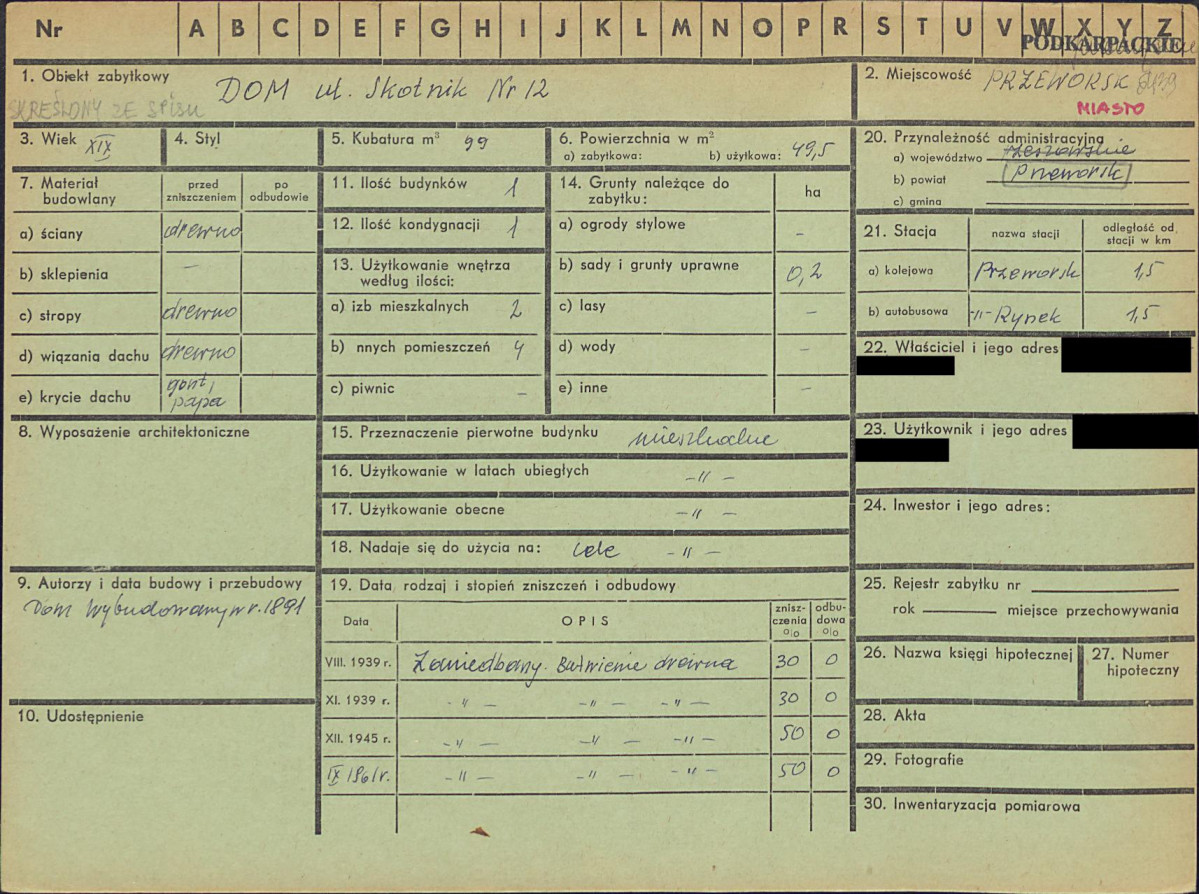 Nr A B C D E F G H I J K L M N O P R S T U V W X Y Z
PODKARPACKIE
1. Obiekt zabytkowy DOM ul. Skotnik Nr 12
SKREŚLONY ZE SPISU
2. Miejscowość PRZEWORSK
MIASTO
3. Wiek XIX
4. Styl
5. Kubatura m³ 99
6. Powierzchnia w m²
a) zabytkowa: b) użytkowa: 49,5
20. Przynależność administracyjna
a) województwo rzeszowskie
b) powiat Przeworsk
c) gmina
7. Materiał budowlany
przed zniszczeniem
po odbudowie
a) ściany drewno
b) sklepienia —
c) stropy drewno
d) wiązania dachu drewno
e) krycie dachu gont, papa
11. Ilość budynków 1
12. Ilość kondygnacji 1
13. Użytkowanie wnętrza
według ilości:
a) izb mieszkalnych 2
b) nnych pomieszczeń 4
c) piwnic –
14. Grunty należące do
zabytku: ha
a) ogrody stylowe –
b) sady i grunty uprawne 0,2
c) lasy –
d) wody –
e) inne –
21. Stacja nazwa stacji odległość od stacji w km
a) kolejowa Przeworsk 1,5
b) autobusowa -"- Rynek 1,5
22. Właściciel i jego adres
23. Użytkownik i jego adres
8. Wyposażenie architektoniczne
15. Przeznaczenie pierwotne budynku mieszkalne
16. Użytkowanie w latach ubiegłych -"-
17. Użytkowanie obecne -"-
18. Nadaje się do użycia na: cele -"-
24. Inwestor i jego adres:
9. Autorzy i data budowy i przebudowy
Dom wybudowany w r. 1891
19. Data, rodzaj i stopień zniszczeń i odbudowy
Data OPIS zniszczenia o|o odbudowa o|o
VIII. 1939 r. Zaniedbany. Butwienie drewna 30 0
XI. 1939 r. -"- -"- -"- 30 0
XII. 1945 r. -"- -"- -"- 50 0
IX 1961 r. -"- -"- -"- 50 0
25. Rejestr zabytku nr
rok miejsce przechowywania
26. Nazwa księgi hipotecznej
27. Numer hipoteczny
10. Udostępnienie
28. Akta
29. Fotografie
30. Inwentaryzacja pomiarowa